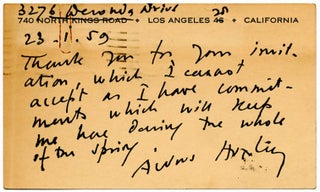 3276 Deronda Drive 28
740 NORTH KINGS ROAD • LOS ANGELES 46 • CALIFORNIA
23.1.59
Thank you for your invit-
ation, which I cannot
accept as I have commit-
ments which will keep
me here during the whole
of the spring
Aldous Huxley